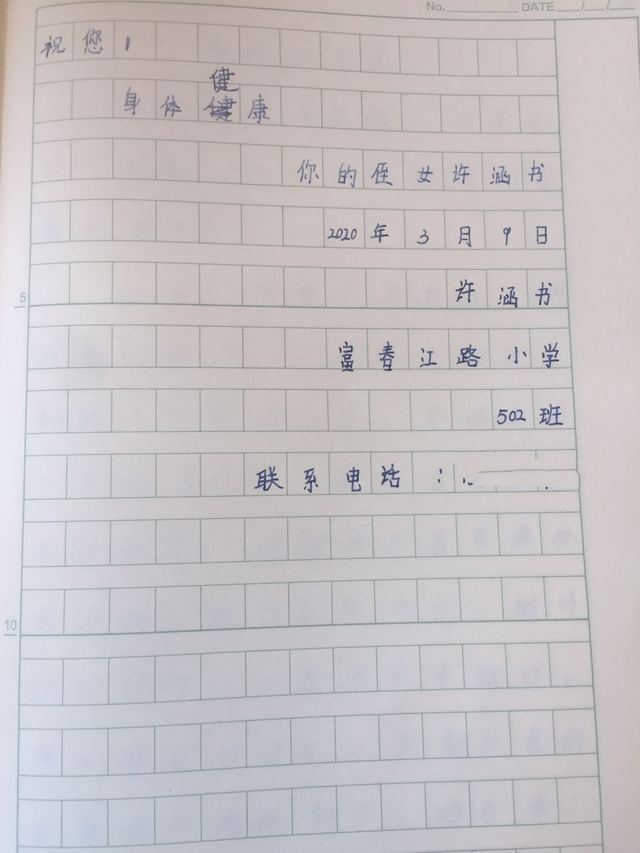 No. DATE / /
祝您!
身体健康
你的侄女许涵书
2020年3月9日
5
许涵书
富春江路小学
502班
联系电话:
10